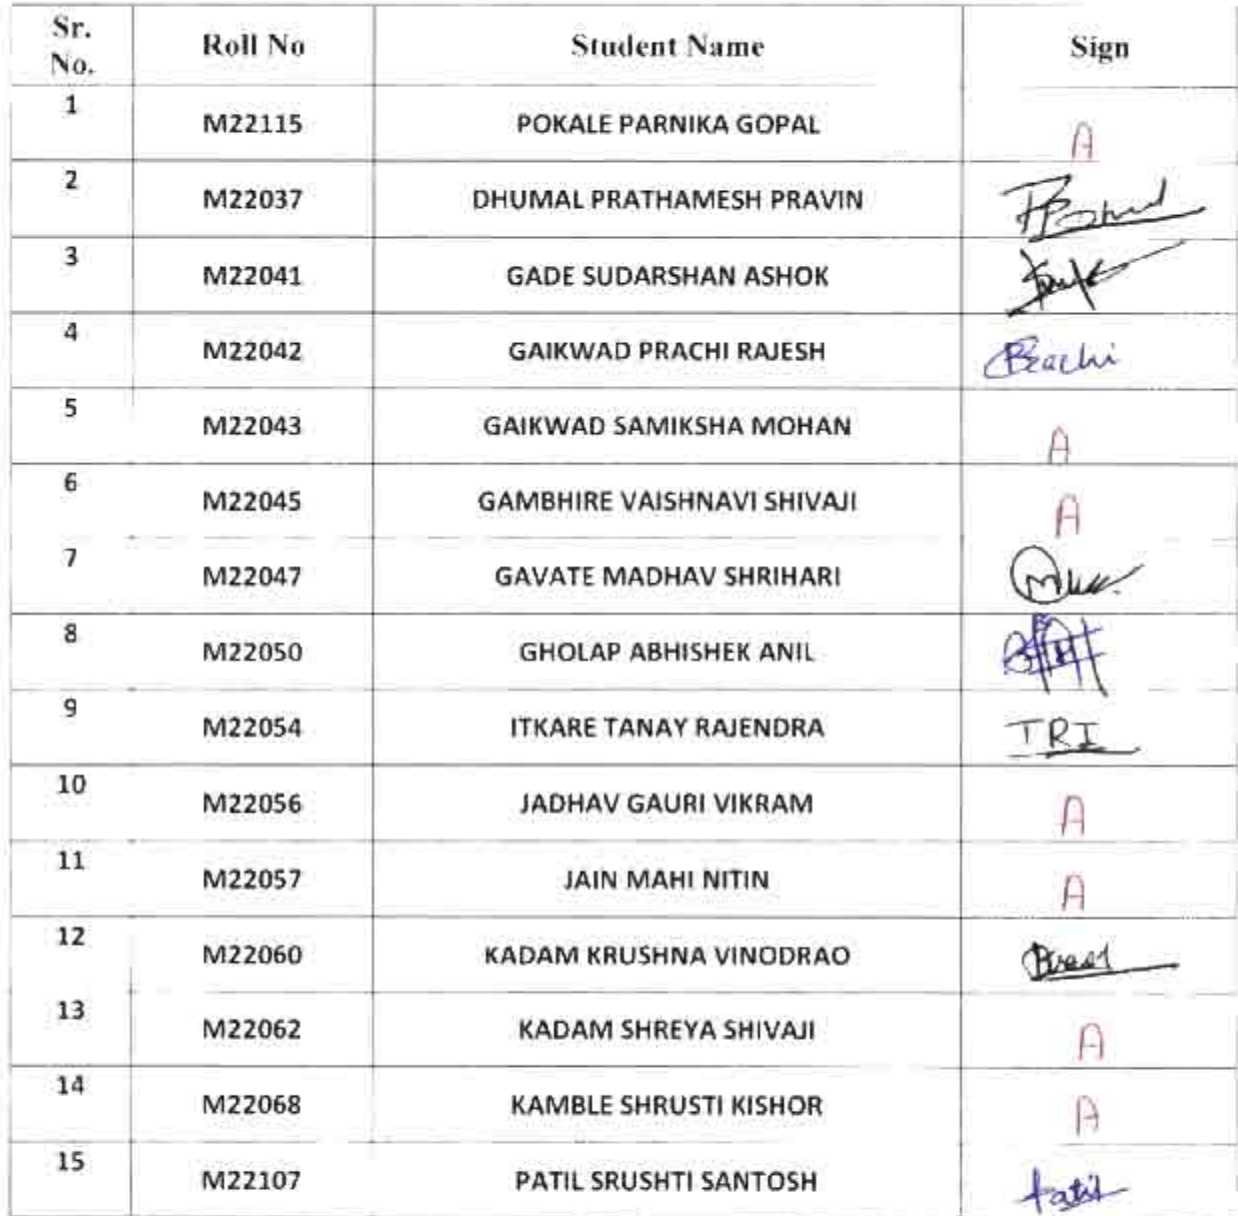 Sr. No. Roll No Student Name Sign
1 M22115 POKALE PARNIKA GOPAL A
2 M22037 DHUMAL PRATHAMESH PRAVIN
3 M22041 GADE SUDARSHAN ASHOK
4 M22042 GAIKWAD PRACHI RAJESH Prachi
5 M22043 GAIKWAD SAMIKSHA MOHAN A
6 M22045 GAMBHIRE VAISHNAVI SHIVAJI A
7 M22047 GAVATE MADHAV SHRIHARI
8 M22050 GHOLAP ABHISHEK ANIL
9 M22054 ITKARE TANAY RAJENDRA TRI
10 M22056 JADHAV GAURI VIKRAM A
11 M22057 JAIN MAHI NITIN A
12 M22060 KADAM KRUSHNA VINODRAO
13 M22062 KADAM SHREYA SHIVAJI A
14 M22068 KAMBLE SHRUSTI KISHOR A
15 M22107 PATIL SRUSHTI SANTOSH Patil